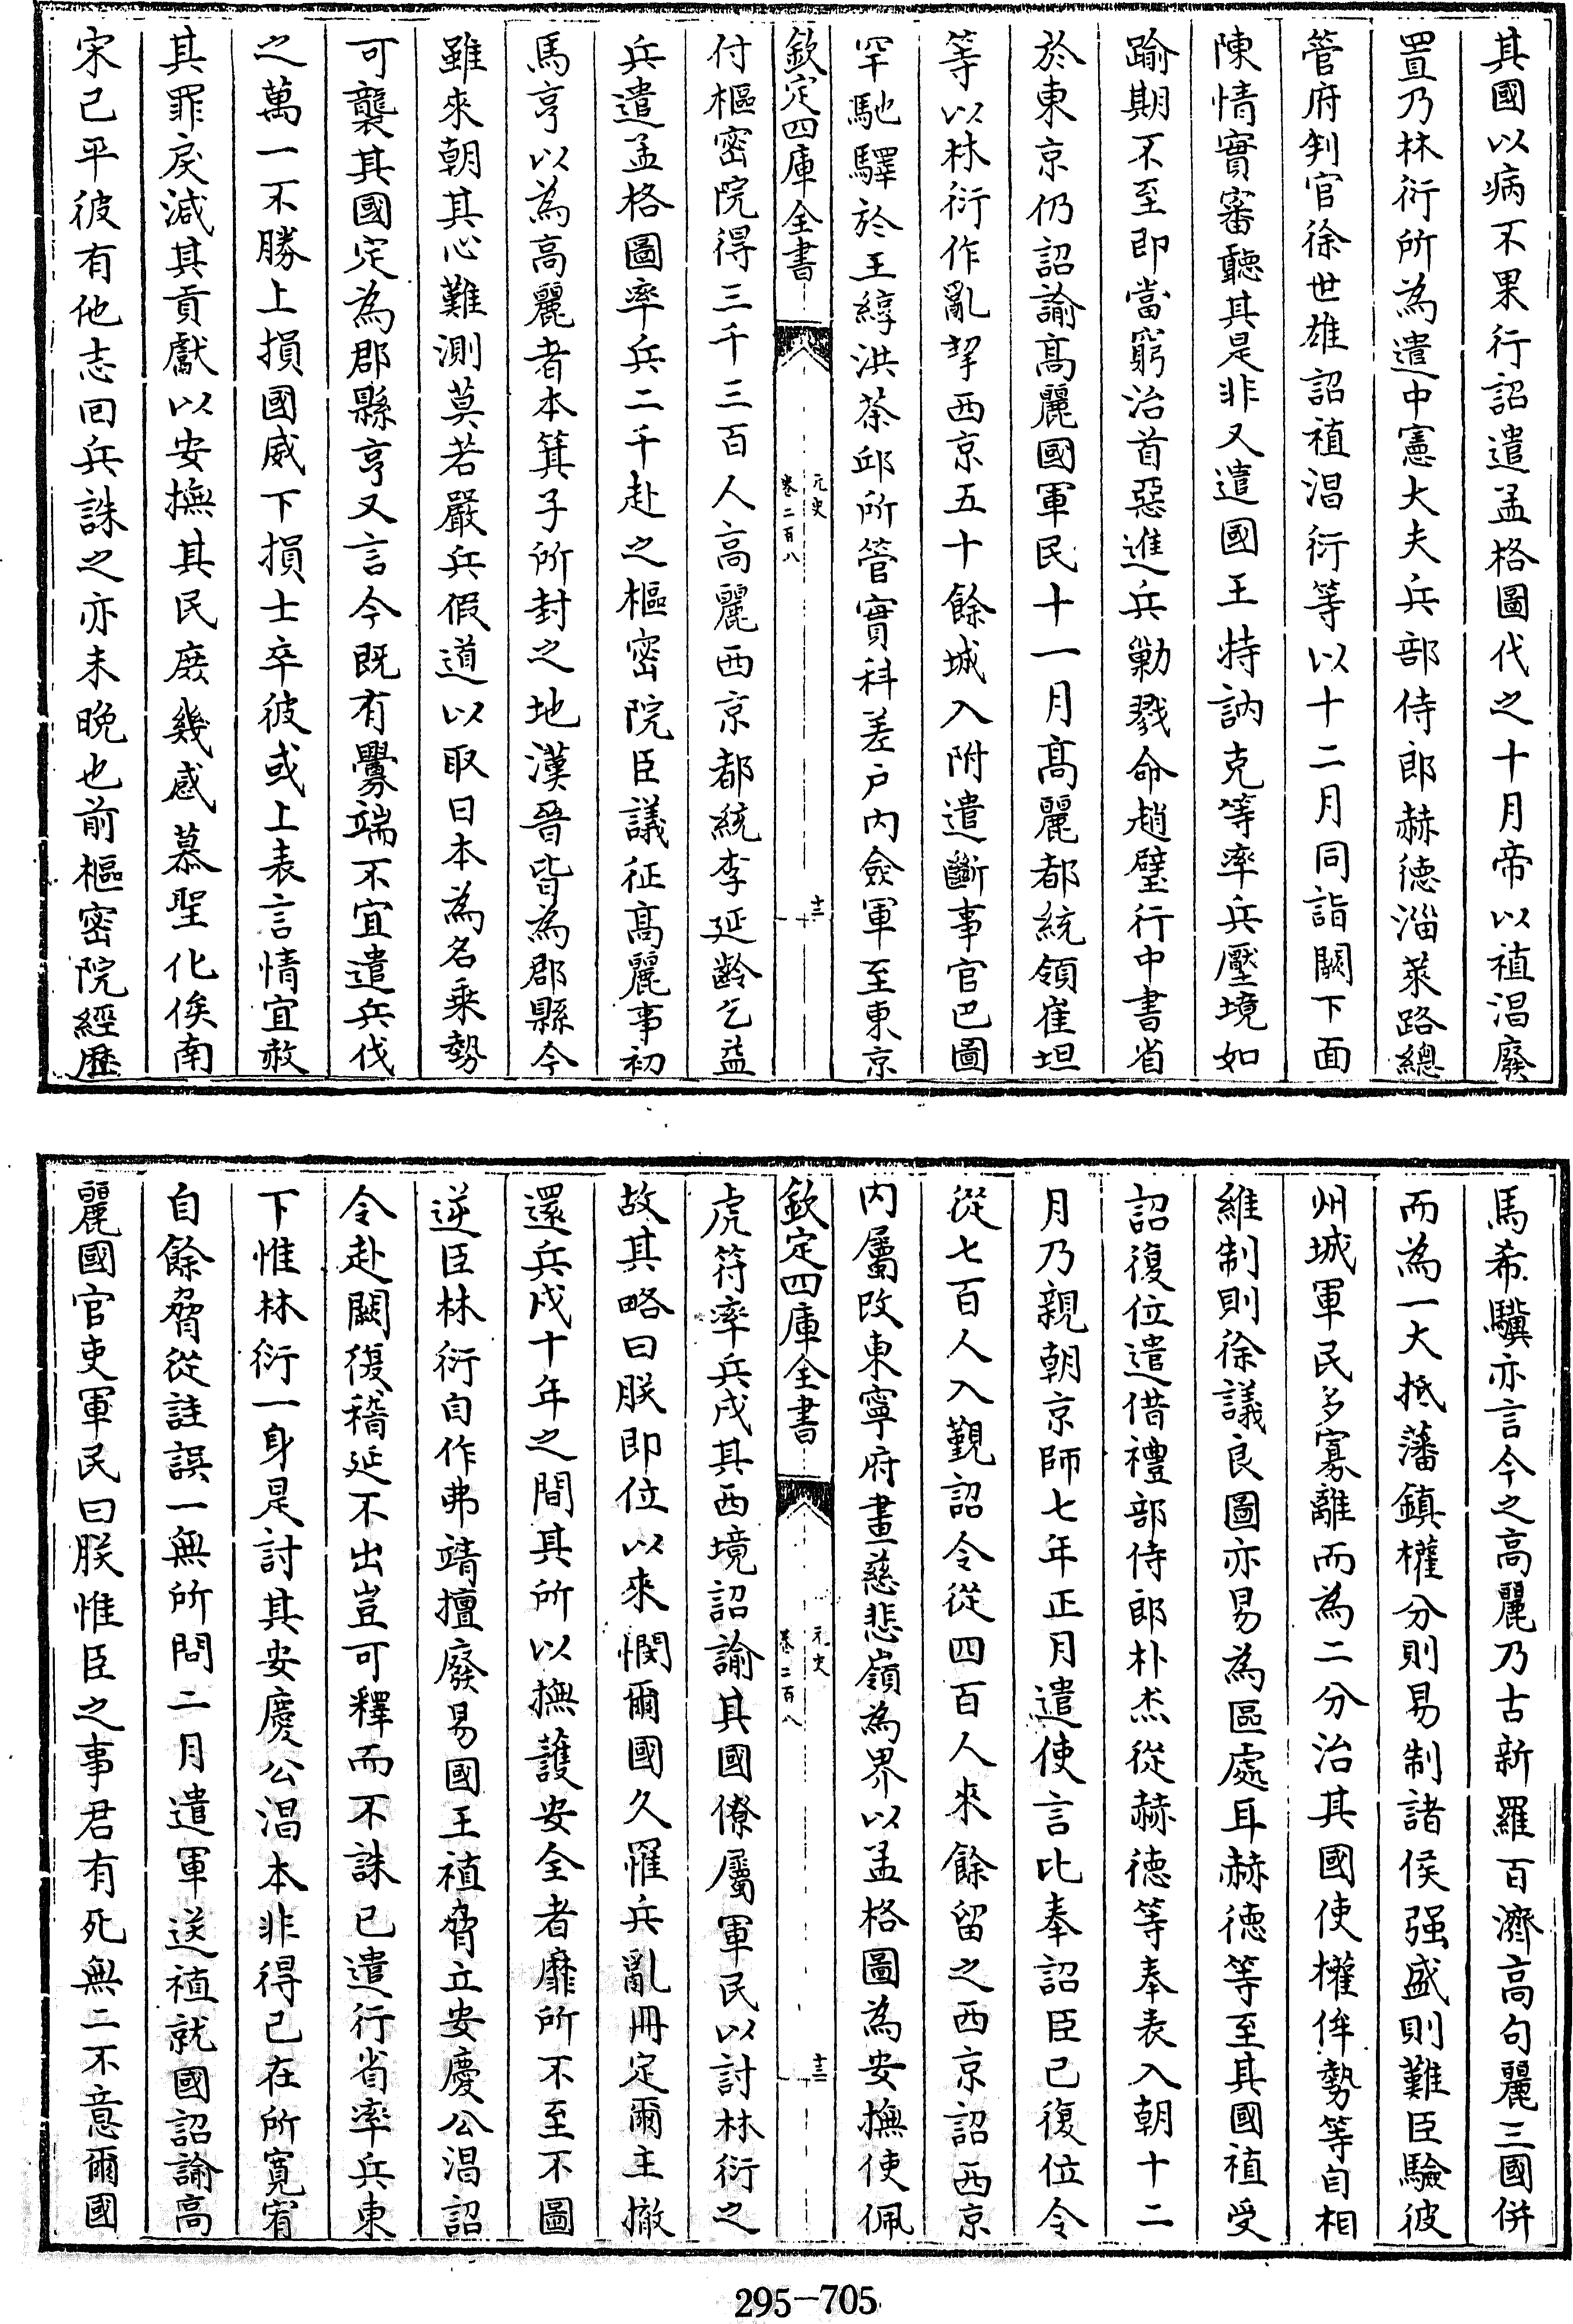 其國以病不果行詔遣孟格圖代之十月帝以禃淐廢
置乃林衍所為遣中憲大夫兵部侍郎赫徳淄萊路總
管府判官徐世雄詔禃淐衍等以十二月同詣闕下面
陳情實審聽其是非又遣國王特訥克等率兵壓境如
踰期不至即當窮治首惡進兵勦戮命趙璧行中書省
於東京仍詔諭髙麗國軍民十一月髙麗都統領崔坦
等以林衍作亂挈西京五十餘城入附遣斷事官巴圖
罕馳驛於王綧洪茶邱所管實科差户内僉軍至東京
欽定四庫全書
元史
卷二百八
十二
付樞密院得三千三百人高麗西京都統李延齡乞益
兵遣孟格圖率兵二千赴之樞密院臣議征髙麗事初
馬亨以為高麗者本箕子所封之地漢晉皆為郡縣今
雖來朝其心難測莫若嚴兵假道以取日本為名乘勢
可襲其國定為郡縣亨又言今既有釁端不宜遣兵伐
之萬一不勝上損國威下損士卒彼或上表言情宜赦
其罪戾減其貢獻以安撫其民庶幾感慕聖化俟南
宋已平彼有他志回兵誅之亦未晩也前樞密院經歷
馬希驥亦言今之高麗乃古新羅百濟高句麗三國併
而為一大抵藩鎮權分則易制諸侯强盛則難臣驗彼
州城軍民多寡離而為二分治其國使權侔勢等自相
維制則徐議良圖亦易為區處耳赫徳等至其國禃受
詔復位遣借禮部侍郎朴杰從赫徳等奉表入朝十二
月乃親朝京師七年正月遣使言比奉詔臣已復位令
從七百人入覲詔令從四百人來餘留之西京詔西京
内屬改東寧府畫慈悲嶺為界以孟格圖為安撫使佩
欽定四庫全書
元史
卷二百八
十三
虎符率兵戍其西境詔諭其國僚屬軍民以討林衍之
故其略曰朕即位以來憫爾國久罹兵亂冊定爾主撤
還兵戍十年之間其所以撫護安全者靡所不至不圖
逆臣林衍自作弗靖擅廢易國王禃脅立安慶公淐詔
令赴闕復稽延不出豈可釋而不誅已遣行省率兵東
下惟林衍一身是討其安慶公淐本非得已在所寛宥
自餘脅從詿誤一無所問二月遣軍送禃就國詔諭高
麗國官吏軍民曰朕惟臣之事君有死無二不意爾國
295-705